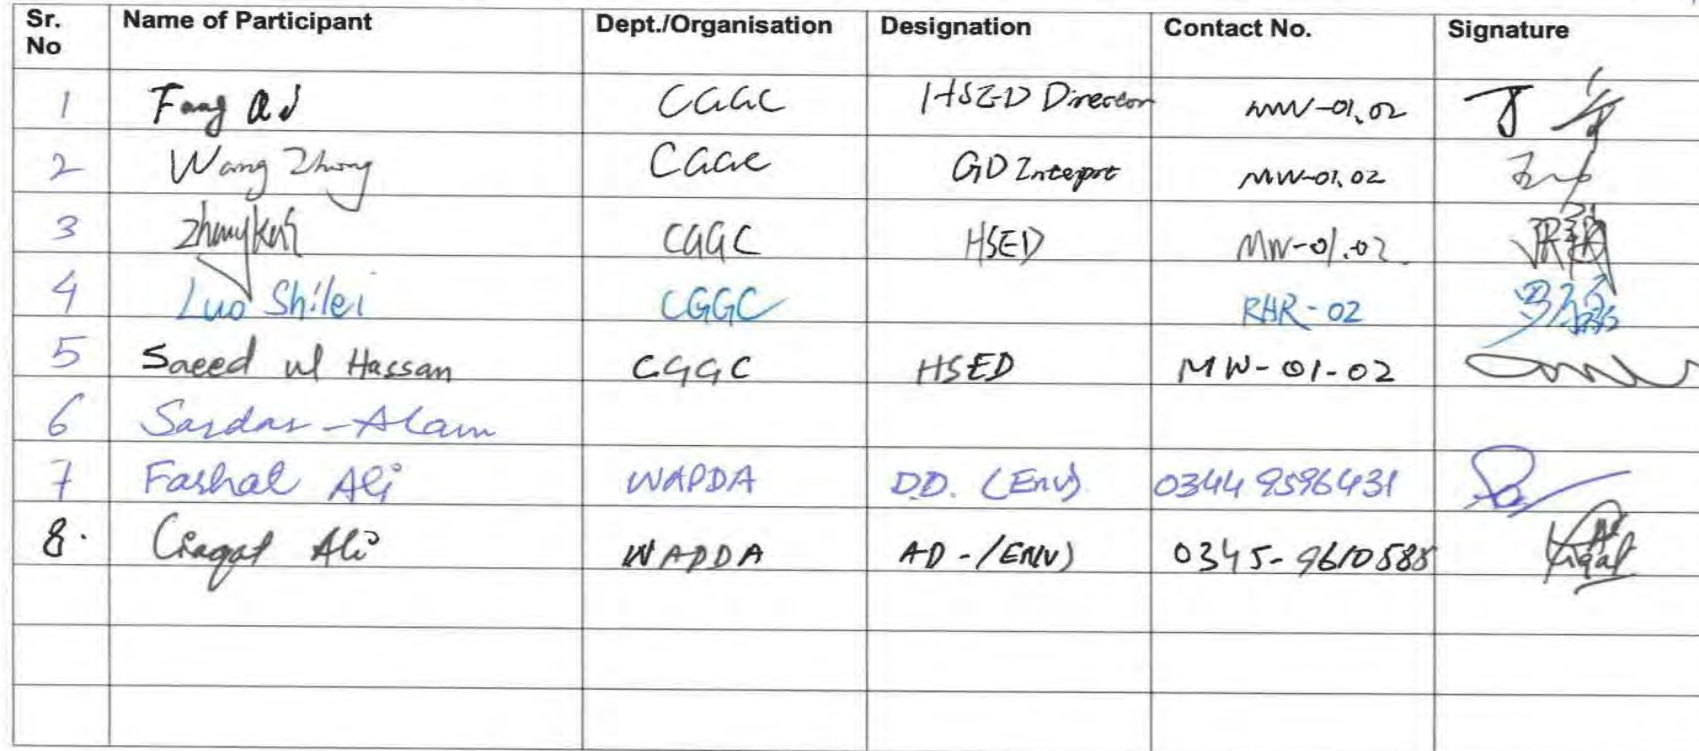 Sr. No Name of Participant Dept./Organisation Designation Contact No. Signature
1 Fang CGGC HSED Director MW-01,02
2 Wang Zhong CGGC GD Interprt MW-01,02
3 CGGC HSED MW-01.02
4 Luo Shilei CGGC RHR-02
5 Saeed ul Hassan CGGC HSED MW-01-02
6 Sardar-Alam
7 Farhat Ali WAPDA D.D. (Env) 0344 9596431
8. Liaqat Ali WAPDA AD-/ENV) 0345-9610585 Liaqat